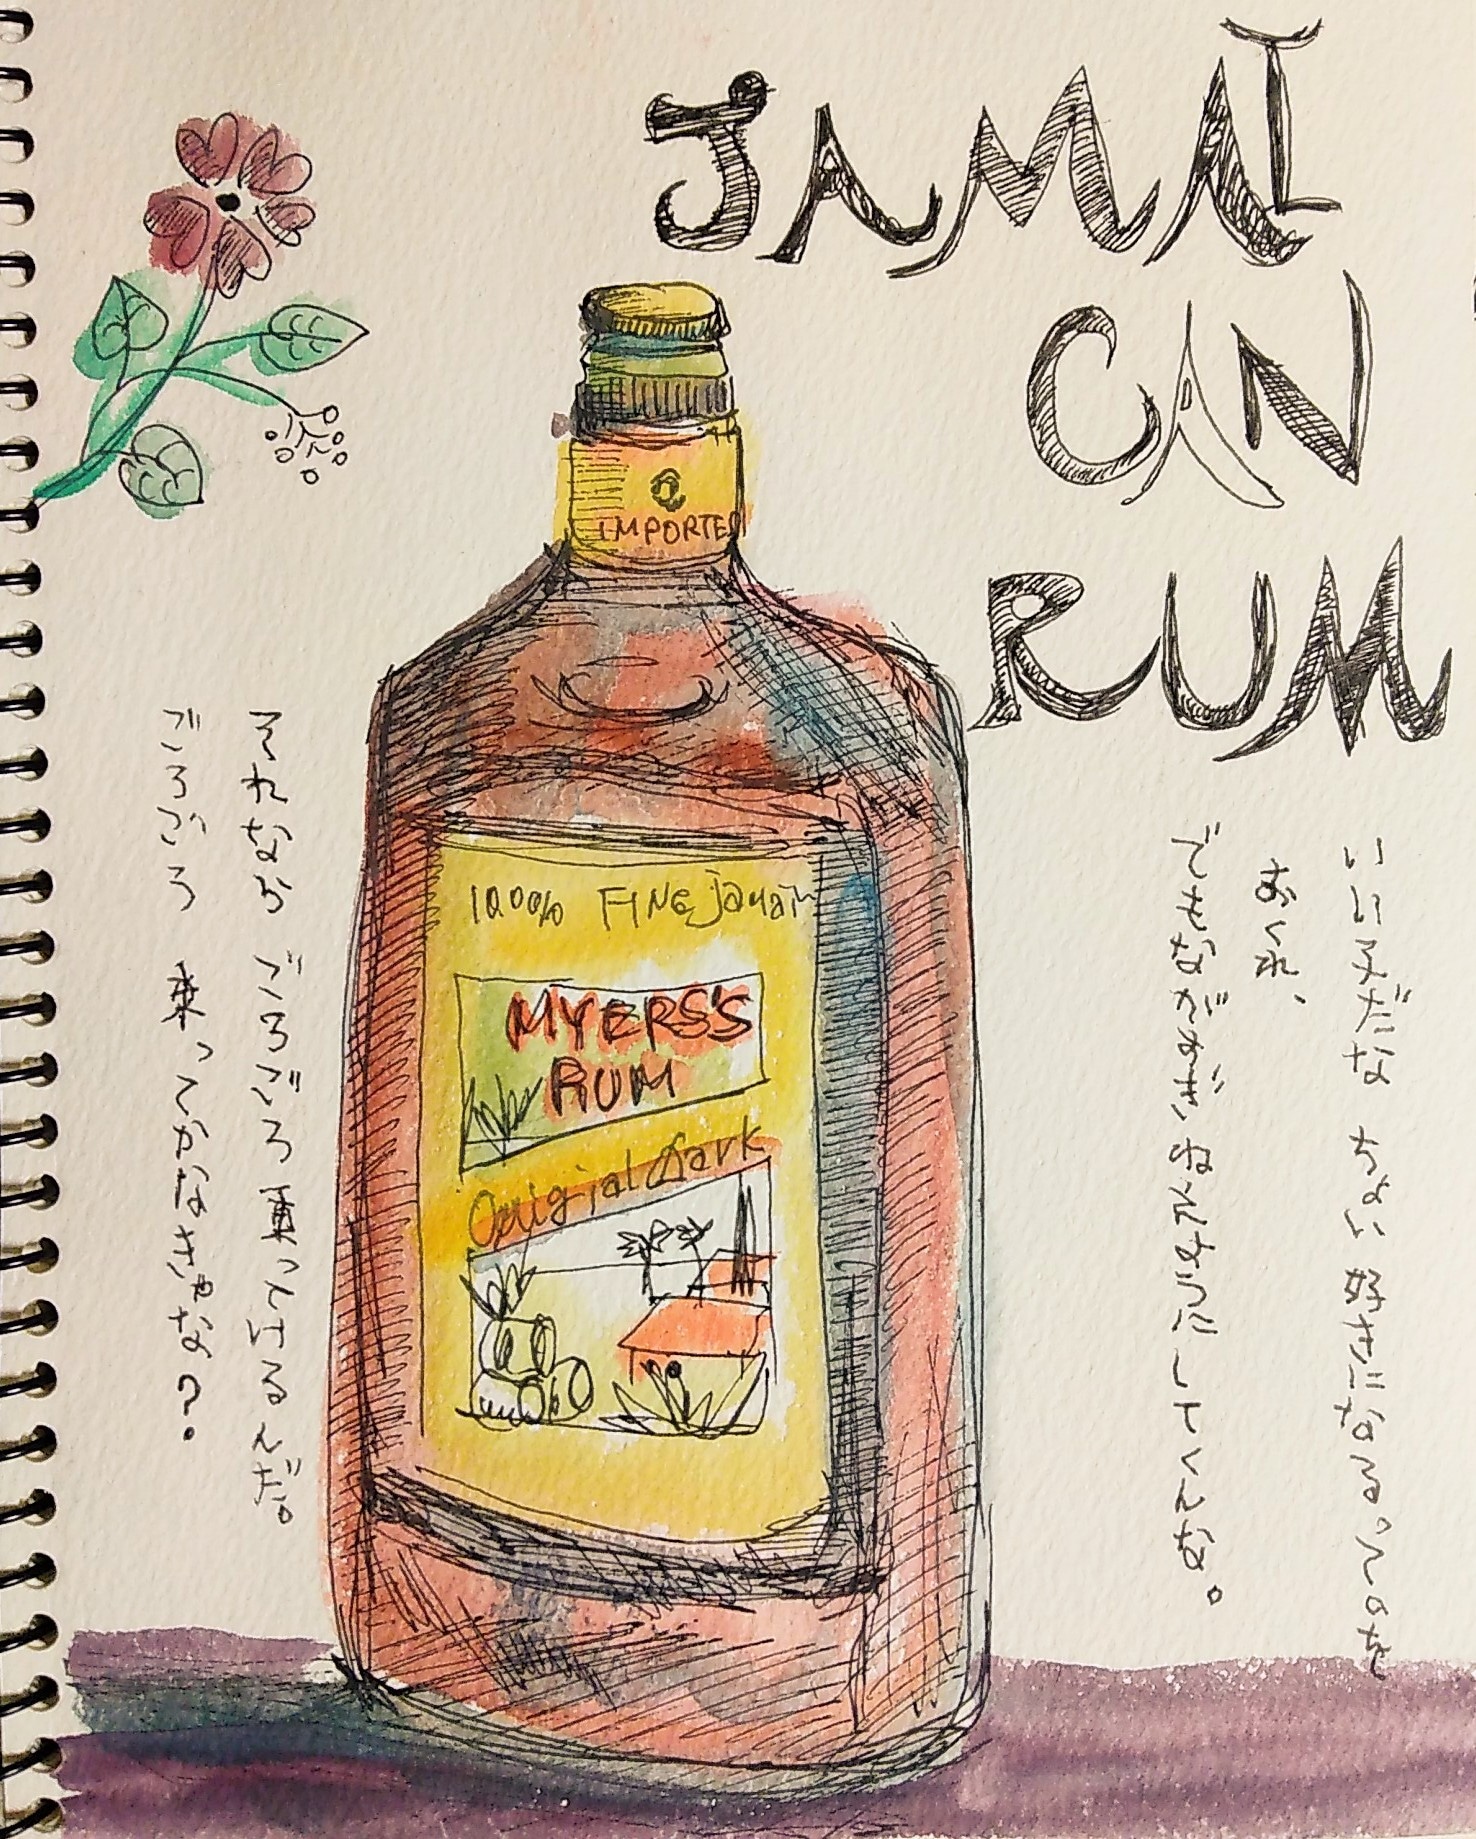 JAMAI
CAN
RUM
IMPORTED
100% FINE Jamai
MYERS'S
RUM
Origial Dark
いい子だな ちょい 好きになるってのを
おくれ、
でもながすぎねえようにしてくんな。
それなら ごろごろ 乗ってけるんだ。
ごろごろ 乗ってかなきゃな?